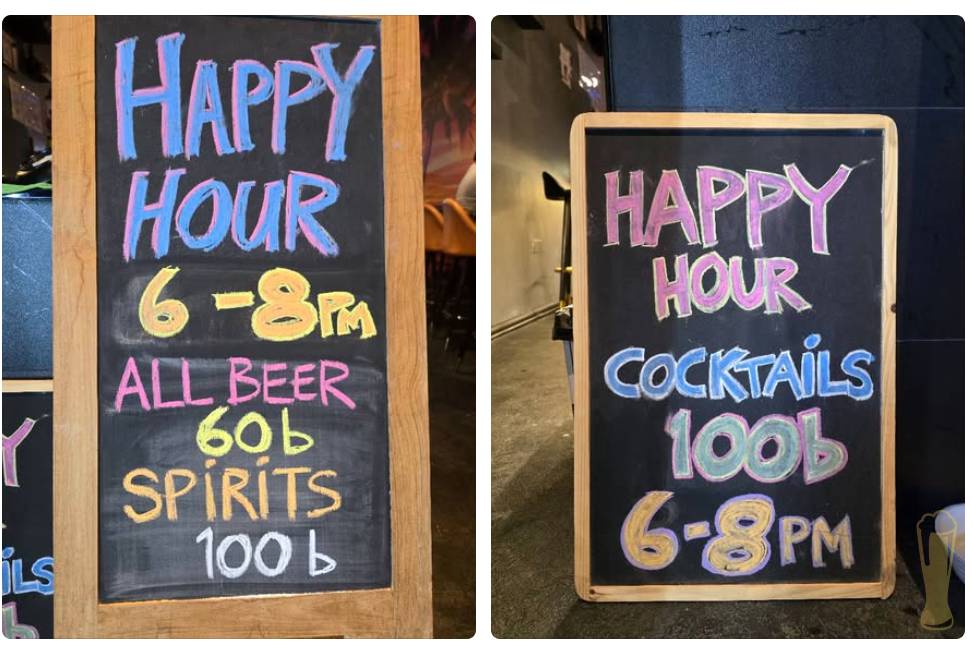 HAPPY
HOUR
6-8PM
ALL BEER
60b
SPIRITS
100b
HAPPY
HOUR
COCKTAILS
100b
6-8PM